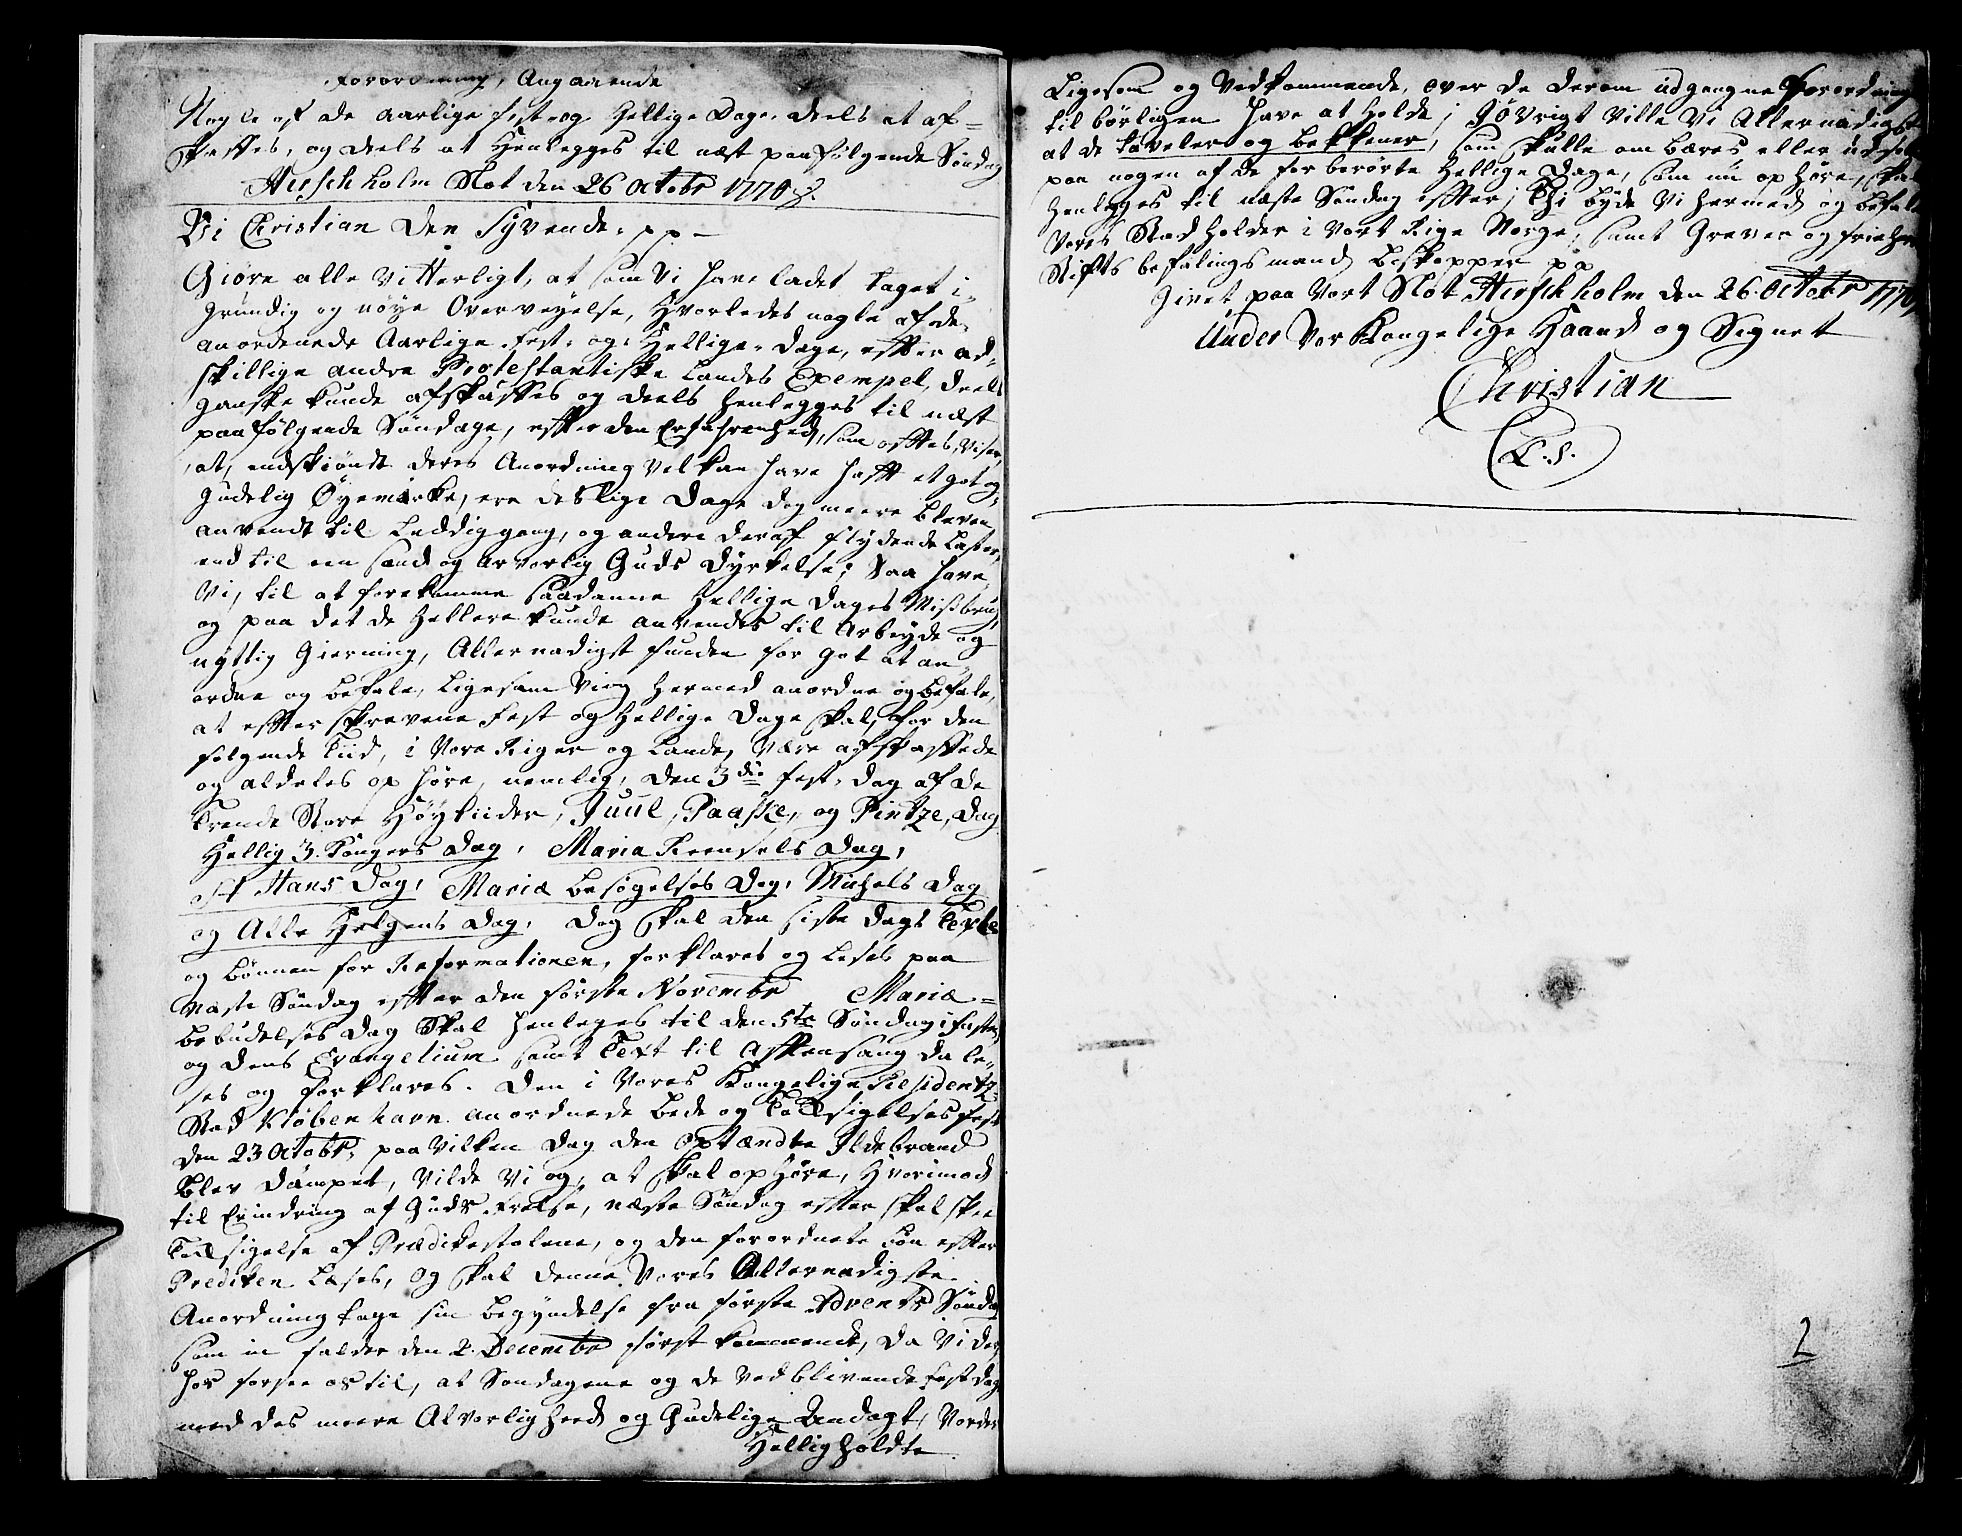 Forordning, Angaaende
Nogle af de aarlige fest- og Hellige Dage, deels at af=
skaffes, og deels at Henlegges til næst paafølgende Søndag
Hirschholm Slot den 26 Octobr 1770.
Vi Christian Den Syvende, pp
Giøre alle Vitterligt, at som Vi have ladet taget i
Grundig og nøye Overveyelse, Hvorledes nogle af de
anordnede Aarlige Fest- og Hellige-Dage, effter ad-
skillige andre Protestantiske Landes Exempel, deels
ganske kunde afskaffes og deels henlegges til næst
paafølgende Søndage, effter den Erfahrenhed, som offtes, Viser,
at, endskiøndt deres Anordning vel kan have hafft et got og
Gudelig Øyemærke, ere deslige Dage dog meere bleven
anvendt til Leddiggang, og andre deraf flydende Laster,
end til een sand og Alvorlig Guds Dyrkelse; Saa have
Vi, til at forekomme saadanne Hellige Dages Misbrug,
og paa det de Hellere kunde anvendes til Arbeyde og
nyttig Gierning, Allernadigst funden for Got at an-
ordne og befale, Ligesom Vi og hermed anordne og befale,
at effterskrevene Fest og Hellige Dage skal, for den
følgende Tiid, i Vore Riger og Lande, være afskaffede
og aldeles ophøre, nemlig, den 3die Fest-dag af de
Trende Store Høytiider, Juul, Paaske, og Pintze, Dag
Hellig 3. Kongers Dag, Maria Reenselses Dag,
St Hans Dag, Mariæ besøgelses Dag, Michels Dag
og Alle Helgens Dag, Dog skal den siste Dags Texte
og bønnen for Reformationen, forklares og Leses paa
næste Søndag effter den første Novembr Mariæ=
bebudelses Dag Skal henleges til den 5te Søndag i faste,
og dens Evangelium samt Text til Afftensang da le-
ses og forklares. Den i Vores Kongelige Residentz
Stad Kiøbenhavn anordnede bede og Taksigelses fest
den 23 Octobr, paa vilken Dag den Optændte Ildebrand
blev dæmpet, vilde Vi og, at skal ophøre, Hvorimod
til Erindring af Guds Frelse, næste Søndag effter skal skee
Taksigelse af Prædikestolene, og den forordnete bøn effter
Prediken Læses, og skal denne Vores Allernadigste
Anordning tage sin begyndelse fra første Advents Søndag
som in falder den 2. Decembr først kommende, da Vi der
hos forsee os til, at Søndagene og de Vedblivende festdage
med des meere Alvorligheed og Gudelige Andagt, Vorder
Helligholdte
Ligesom og Vedkommende, over de derom udgangne Forordninger
tilbørligen have at Holde; I øvrigt Ville Vi Allernadigst
at de Tavler og bekkener, som skulle ombæres eller udsettes
paa nogen af de forberørte Hellige Dage, som nu ophøre, skal
henlegges til næste Søndag effter; Thi byde Vi hermed og befale
Vores Stadholder i Vort Rige Norge, samt Grever og friherrer
Stiftsbefalingsmænd, biskopper pp
Givet paa Vort Slot Hirschholm den 26. Octobr 1770
Under Vor Kongelige Haand og Signet
Christian
L.S.
2